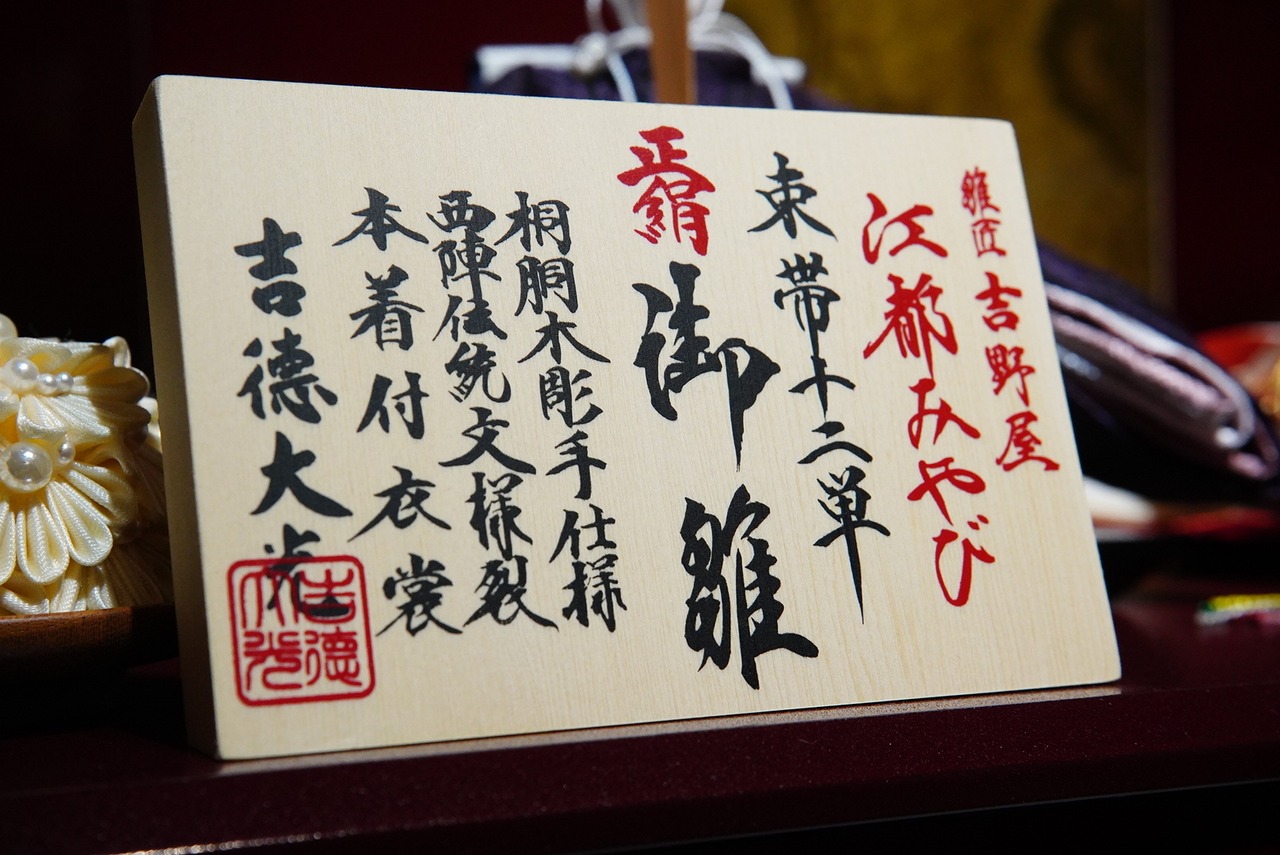 雛匠 吉野屋
江都みやび
束帯十二単
正絹 御雛
桐胴木彫手仕様
西陣伝統文様裂
本着付衣裳
吉德大光
吉德大光